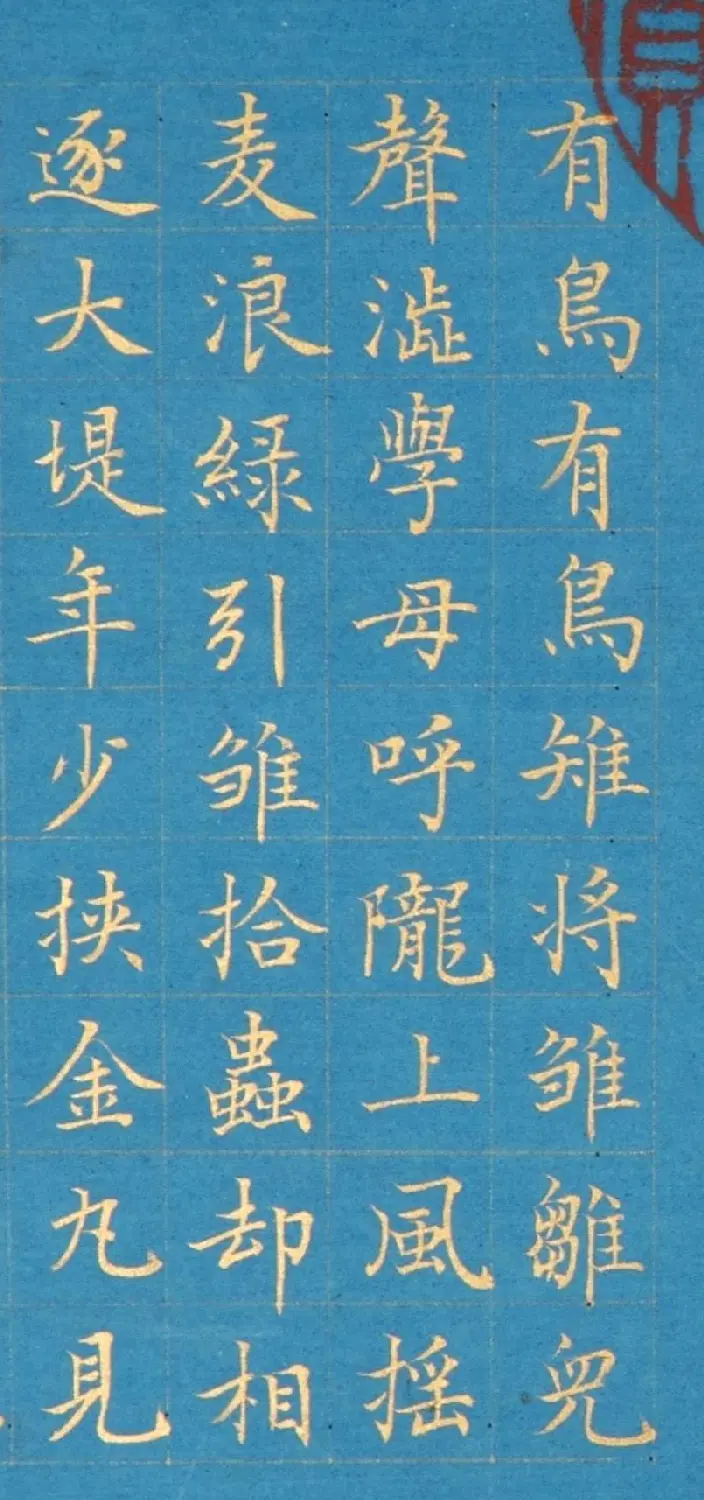 有鳥有鳥雉将雏雛兒
聲澁學母呼隴上風摇
麦浪緑引雏拾蟲却相
逐大堤年少挟金丸見